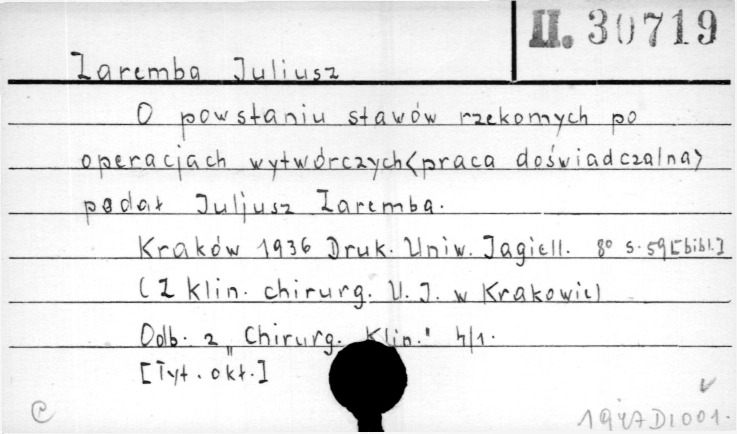 II. 30719
Zaremba Juliusz
O powstaniu stawów rzekomych po
operacjach wytwórczych<praca doświadczalna>
podał Juljusz Zaremba.
Kraków 1936 Druk. Uniw. Jagiell. 8° s. 59[bibl.]
(Z klin. chirurg. U. J. w Krakowie)
Odb. z „Chirurg. Klin." 4/1.
[Tyt. okł.]
1947 D 1001.